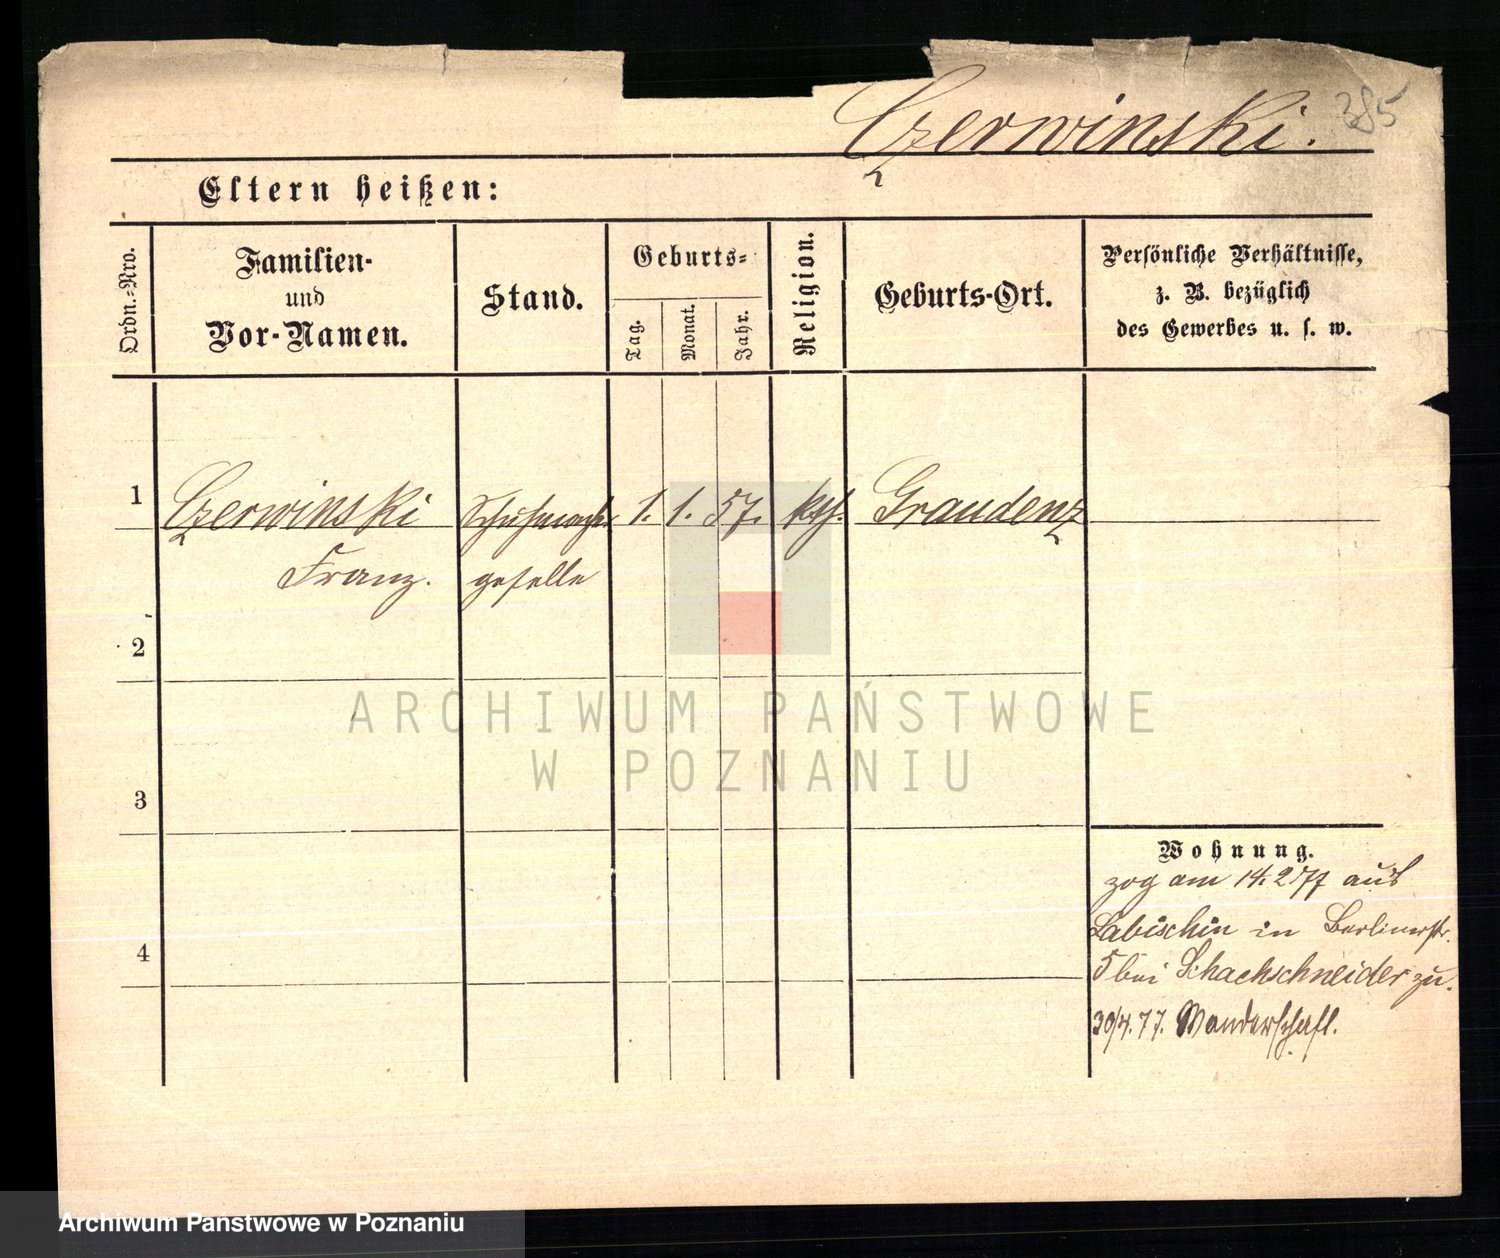 Czerwinski. 385
Eltern heißen:
Ordn.-Nro.
Familien-
und
Vor-Namen.
Stand.
Geburts-
Tag.
Monat.
Jahr.
Religion.
Geburts-Ort.
Persönliche Verhältnisse,
z. B. bezüglich
des Gewerbes u. s. w.
1 Czerwinski Schuhmacher 1. 1. 57. kth. Graudenz
Franz. geselle
2
3
4
Wohnung.
zog am 14.2 77 aus
Labischin in Berlinerstr.
5 bei Schachschneider zu.
30/4.77. Wanderschaft.
ARCHIWUM PAŃSTWOWE
W POZNANIU
Archiwum Państwowe w Poznaniu